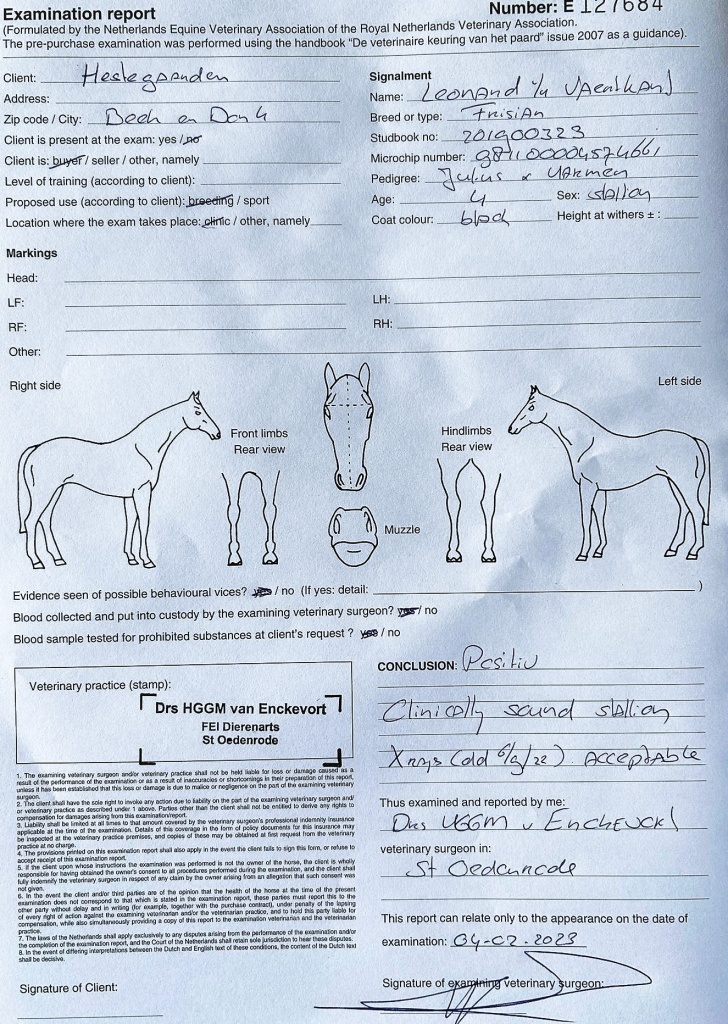 Examination report
Number: E 127684
(Formulated by the Netherlands Equine Veterinary Association of the Royal Netherlands Veterinary Association.
The pre-purchase examination was performed using the handbook "De veterinaire keuring van het paard" issue 2007 as a guidance).
Client: Hestegaarden
Address:
Zip code / City: Beek en Donk
Client is present at the exam: yes / no
Client is: buyer / seller / other, namely
Level of training (according to client):
Proposed use (according to client): breeding / sport
Location where the exam takes place: clinic / other, namely
Signalment
Name: Leonard
Breed or type: Friesian
Studbook no: 201900323
Microchip number:
Pedigree: Julius x
Age: 4 Sex: stallion
Coat colour: Height at withers ± :
Markings
Head:
LF: LH:
RF: RH:
Other:
Right side
Left side
Front limbs
Rear view
Hindlimbs
Rear view
Muzzle
Evidence seen of possible behavioural vices? yes / no (If yes: detail: )
Blood collected and put into custody by the examining veterinary surgeon? yes / no
Blood sample tested for prohibited substances at client's request ? yes / no
Veterinary practice (stamp):
Drs HGGM van Enckevort
FEI Dierenarts
St Oedenrode
1. The examining veterinary surgeon and/or veterinary practice shall not be held liable for loss or damage caused as a
result of the performance of the examination or as a result of inaccuracies or shortcomings in their preparation of this report,
unless it has been established that this loss or damage is due to malice or negligence on the part of the examining veterinary
surgeon.
2. The client shall have the sole right to invoke any action due to liability on the part of the examining veterinary surgeon and/
or veterinary practice as described under 1 above. Parties other than the client shall not be entitled to derive any rights to
compensation for damages arising from this examination/report.
3. Liability shall be limited at all times to that amount covered by the veterinary surgeon's professional indemnity insurance
applicable at the time of the examination. Details of this coverage in the form of policy documents for this insurance may
be inspected at the veterinary practice premises, and copies of these may be obtained at first request from the veterinary
practice at no charge.
4. The provisions printed on this examination report shall also apply in the event the client fails to sign this form, or refuse to
accept receipt of this examination report.
5. If the client upon whose instructions the examination was performed is not the owner of the horse, the client is wholly
responsible for having obtained the owner's consent to all procedures performed during the examination, and the client shall
fully indemnify the veterinary surgeon in respect of any claim by the owner arising from an allegation that such consent was
not given.
6. In the event the client and/or third parties are of the opinion that the health of the horse at the time of the present
examination does not correspond to that which is stated in the examination report, these parties must report this to the
other party without delay and in writing (for example, together with the purchase contract), under penalty of the lapsing
of every right of action against the examining veterinarian and/or the veterinarian practice, and to hold this party liable for
compensation, while also simultaneously providing a copy of this report to the examination veterinaria and the veterinarian
practice.
7. The laws of the Netherlands shall apply exclusively to any disputes arising from the performance of the examination and/or
the completion of the examination report, and the Court of the Netherlands shall retain sole jurisdiction to hear these disputes.
8. In the event of differing interpretations between the Dutch and English text of these conditions, the content of the Dutch text
shall be decisive.
Signature of Client:
CONCLUSION: Positiv
Clinically sound stallion
Xrays (dd 6/9/22) Acceptable
Thus examined and reported by me:
Drs HGGM v Enckevort
veterinary surgeon in:
St Oedenrode
This report can relate only to the appearance on the date of
examination: 04-02-2023
Signature of examining veterinary surgeon: